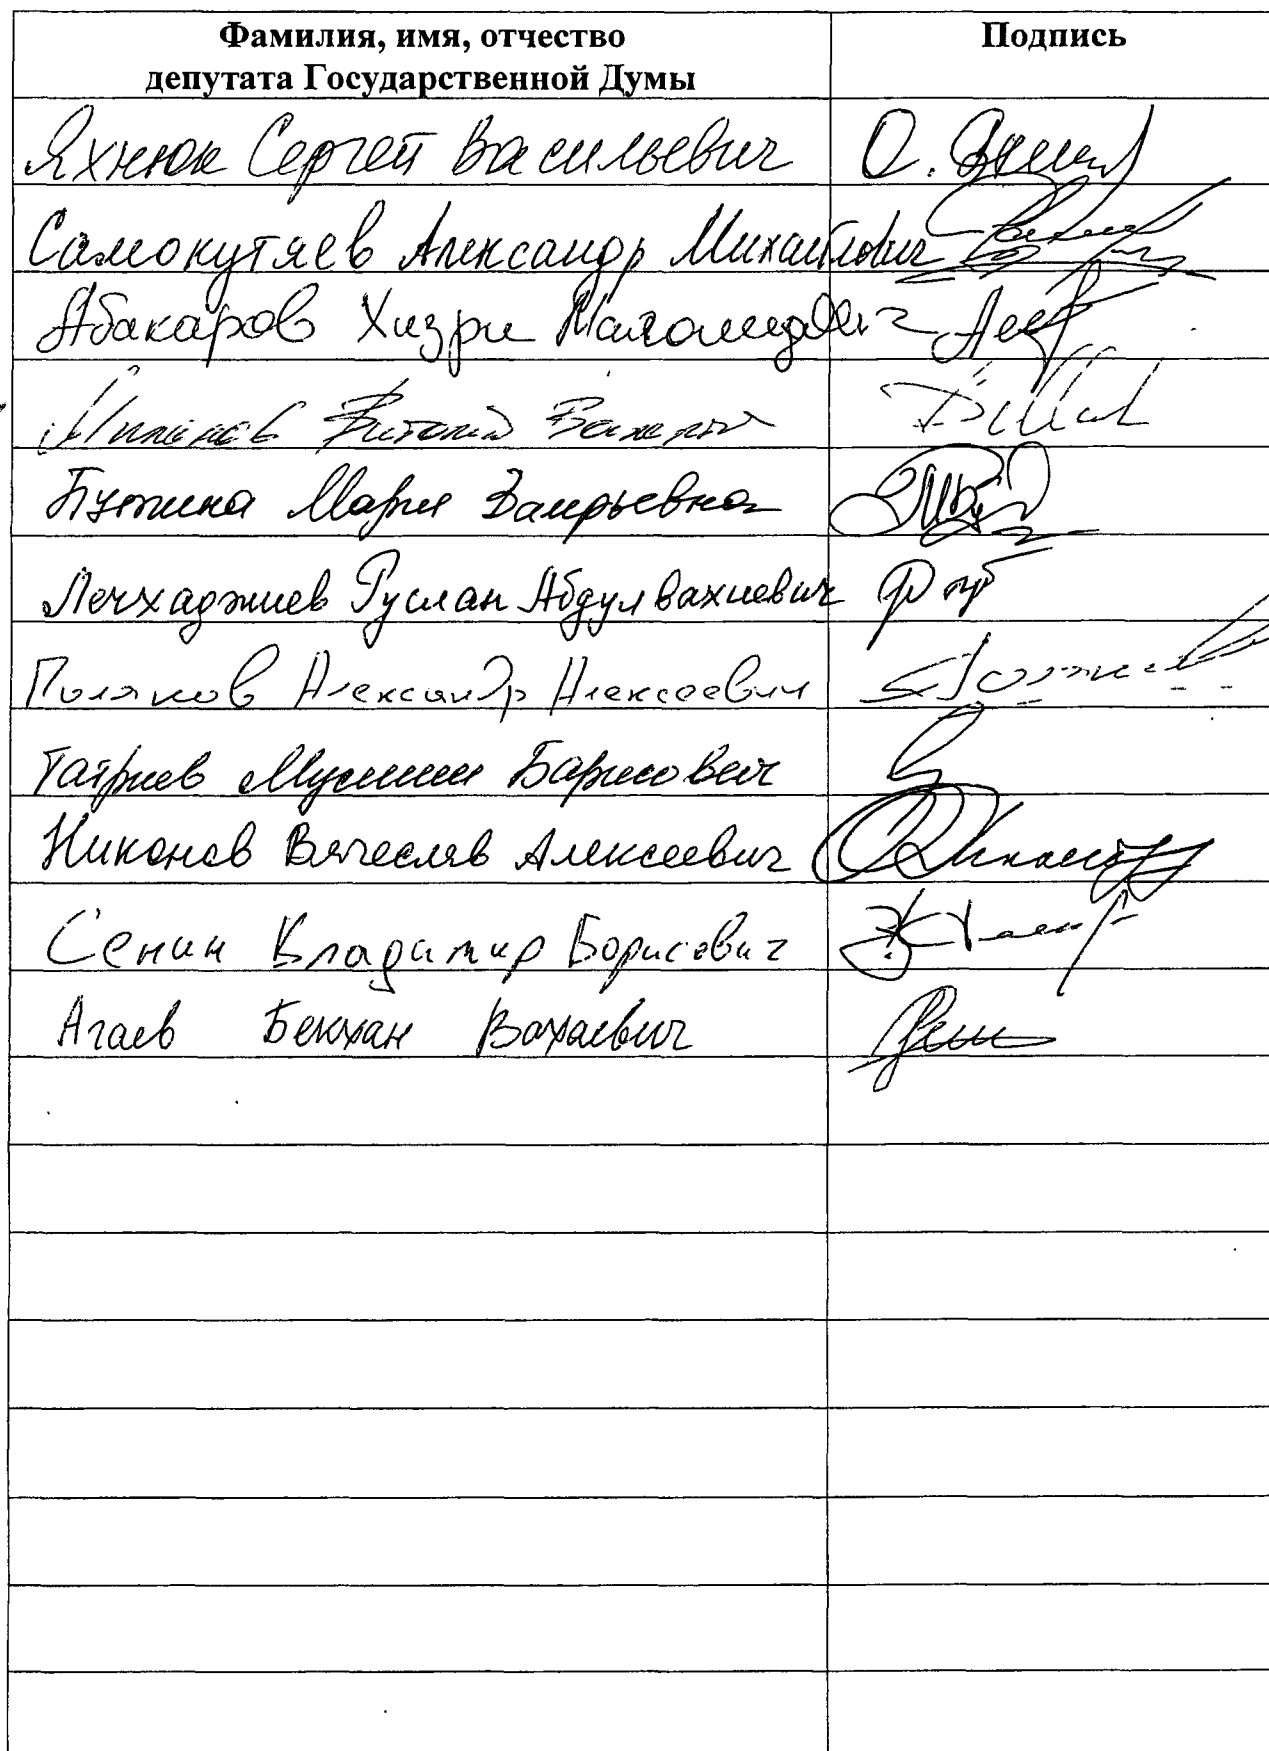 Фамилия, имя, отчество
депутата Государственной Думы
Подпись
Яхнюк Сергей Васильевич
Самокутяев Александр Михайлович
Абакаров Хизри Магомедович
Милонов Виталий
Бутина Мария Валерьевна
Лечхаджиев Руслан Абдулвахиевич
Поляков Александр Алексеевич
Татриев Муслим Барисович
Никонов Вячеслав Алексеевич
Сенин Владимир Борисович
Агаев Бекхан Вахаевич